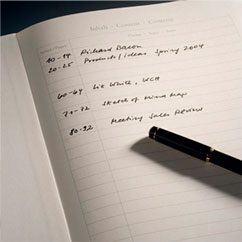 Inhalt - Content - Contenu
10-19 Richard Bacon
20-25 Products/ideas Spring 2004
60-69 Liz White, WCH
70-72 Sketch of Mind Map
80-92 Meeting Sales Review